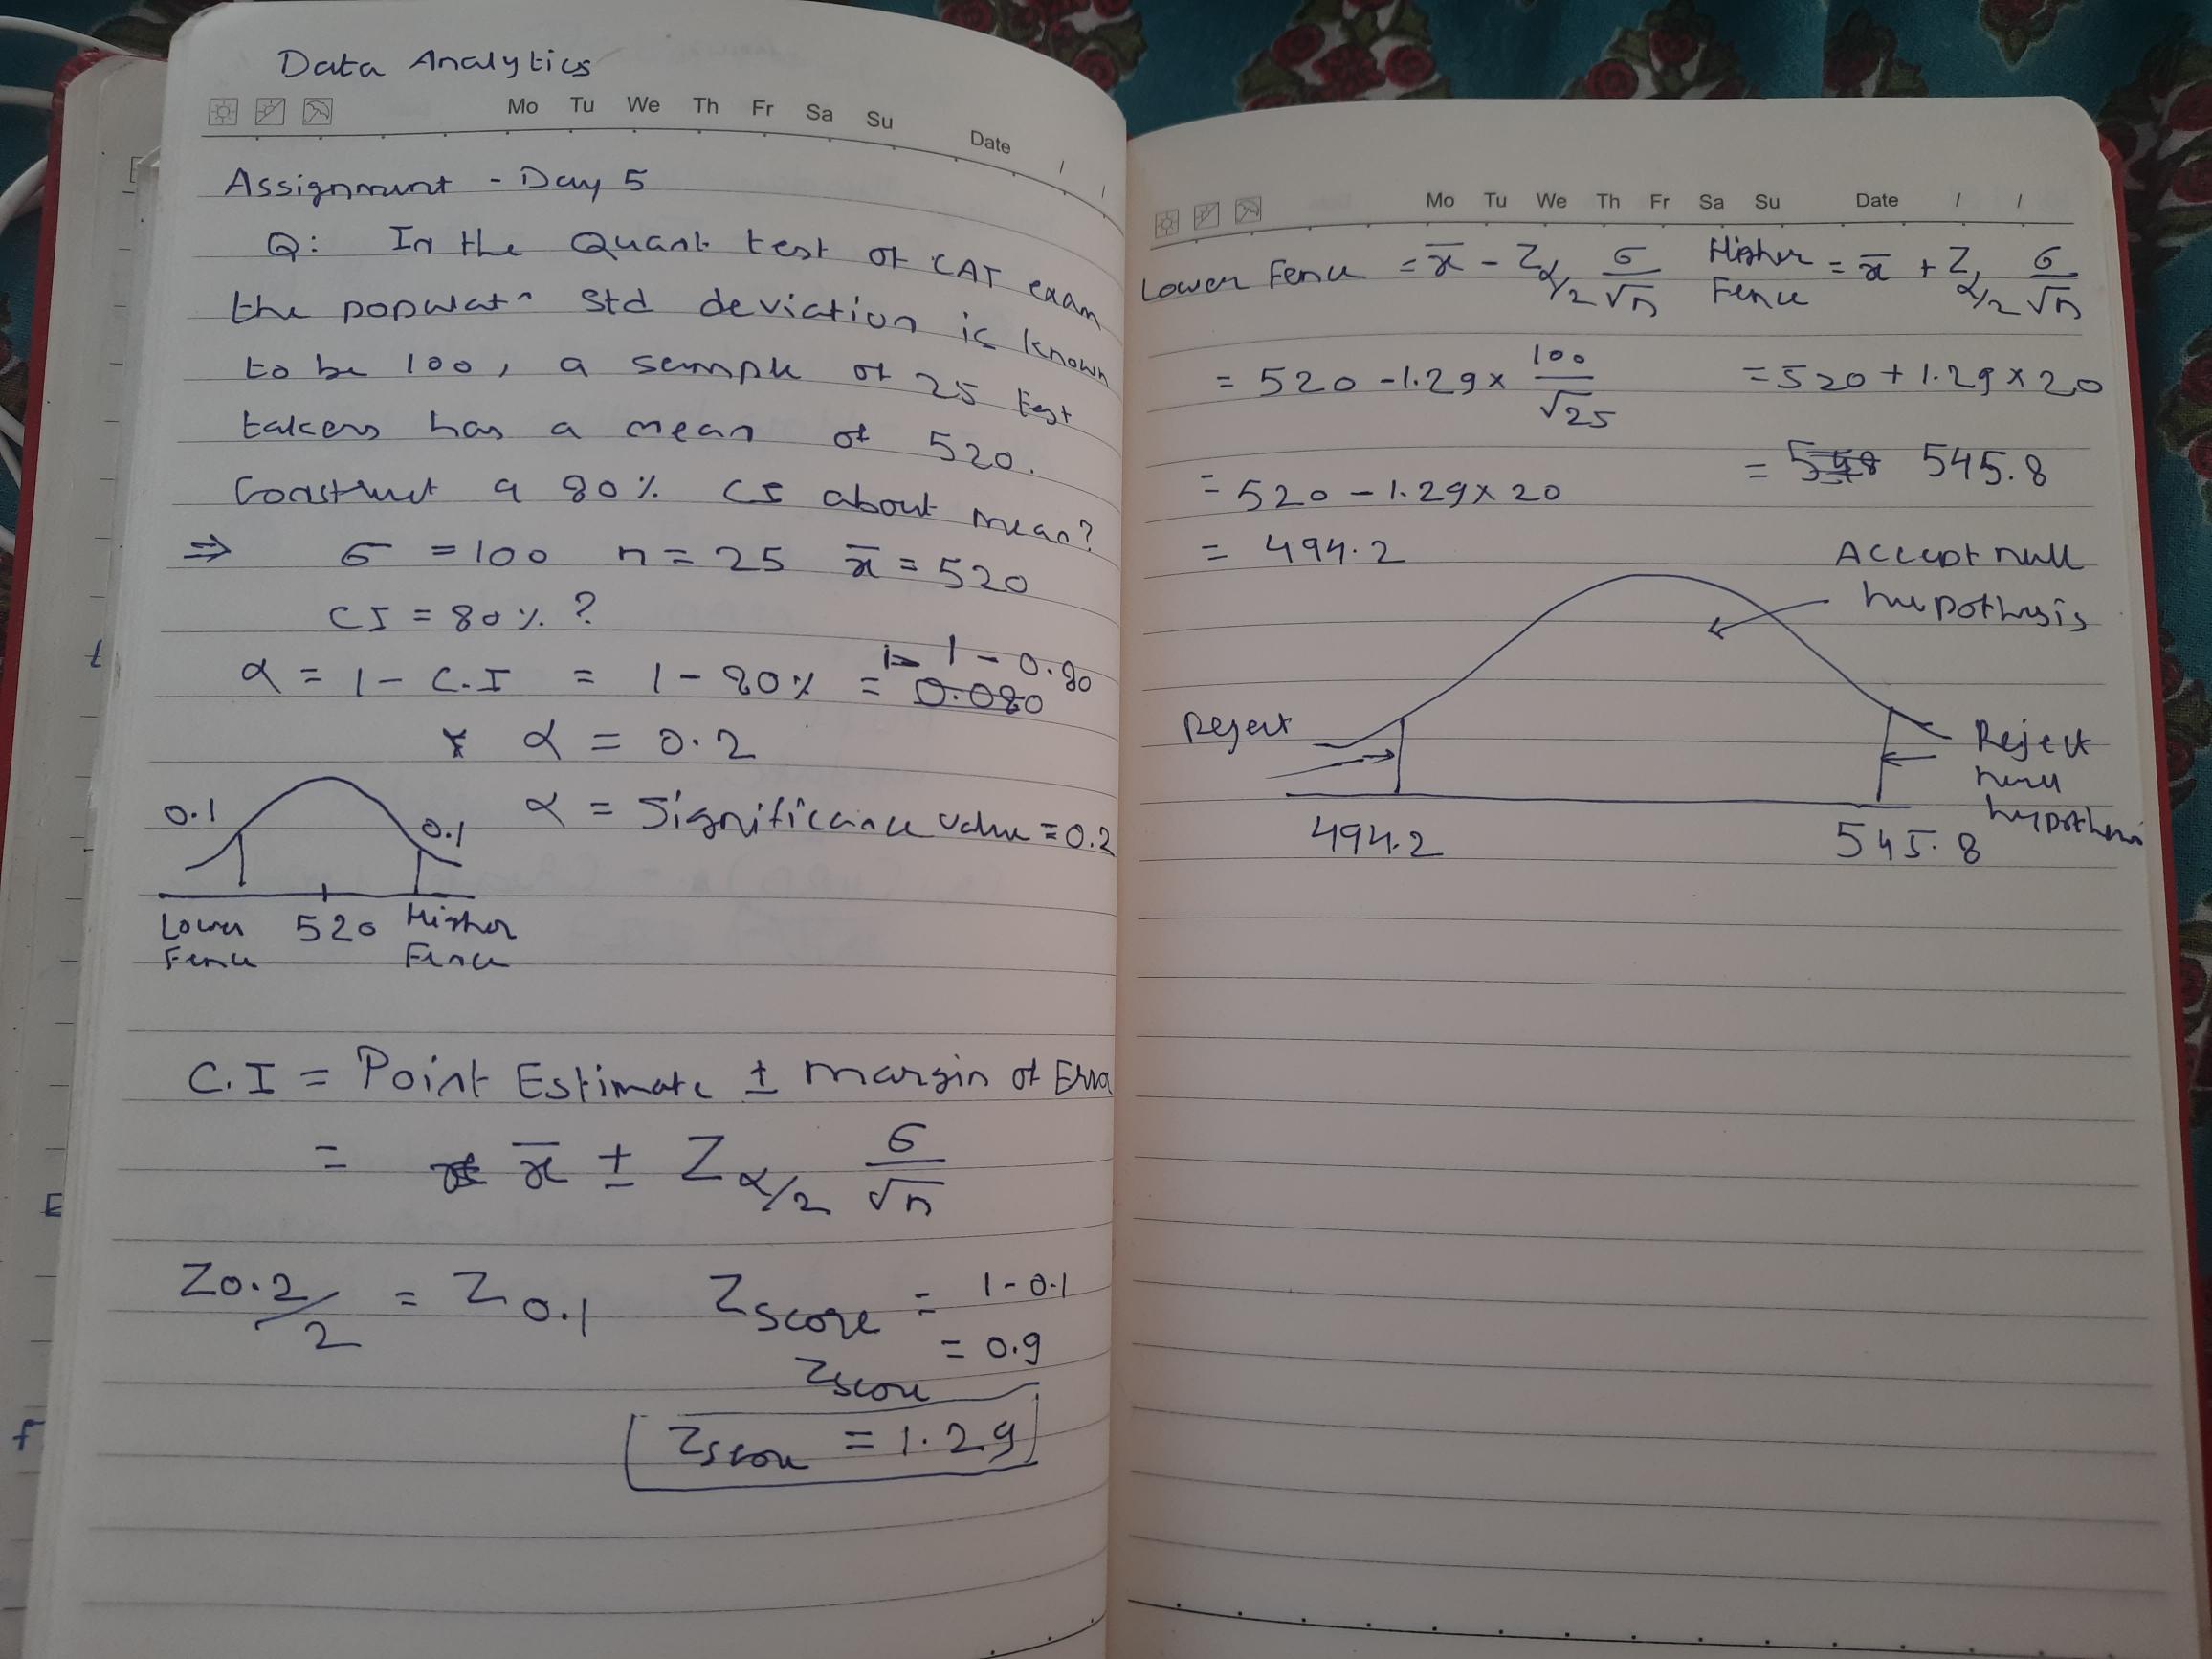 Data Analytics
Mo Tu We Th Fr Sa Su Date / /
Assignment - Day 5
Q: In the Quant test of CAT exam
the populatⁿ std deviation is known
to be 100, a sample of 25 test
takers has a mean of 520.
Construct a 80% CI about mean?
⇒ σ = 100 n = 25 x̄ = 520
CI = 80% ?
α = 1 - C.I = 1 - 80% = 1 - 0.80
0.080
α = 0.2
α = Significance value = 0.2
0.1 0.1
Lower 520 Higher
Fence Fence
C.I = Point Estimate ± margin of Error
= x̄ ± Z α/2 σ/√n
Z0.2/2 = Z0.1 Zscore = 1 - 0.1
= 0.9
Zscore
Zscore = 1.29
Mo Tu We Th Fr Sa Su Date / /
Lower Fence = x̄ - Zα/2 σ/√n Higher Fence = x̄ + Zα/2 σ/√n
= 520 - 1.29 × 100/√25 = 520 + 1.29 × 20
= 520 - 1.29 × 20 = 545.8
= 494.2
Accept null
hypothesis
Reject
Reject
null
hypothesis
494.2 545.8